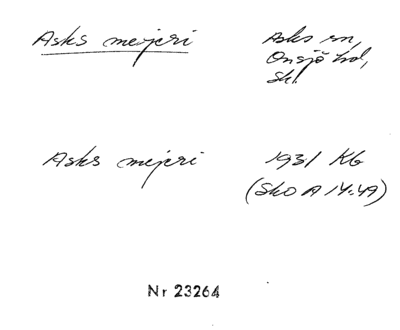 Asks mejeri Asks sn,
Onsjö hd,
Sk.
Asks mejeri 1931 KG
(SkO A 14:49)
Nr 23264